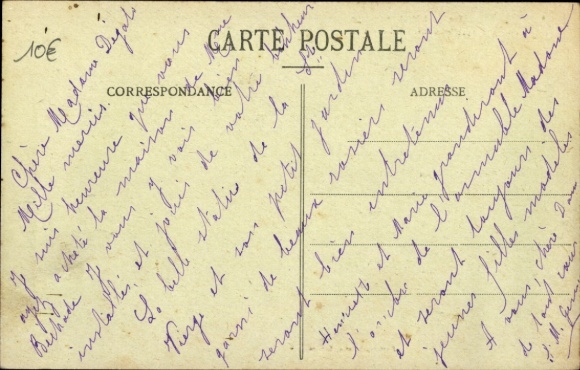 10€
CARTE POSTALE
CORRESPONDANCE
ADRESSE
Chère Madame
Mille mercis.
Je suis heureuse que vous
ayez acheté la maison de Mme
Je vous y vois bien
installée et jouis de votre bonheur
La belle statue de la Ste
Vierge et son petit jardin
garni de beaux rosiers seront
seront bien entretenus
Henriette et Marie grandiront à
l'ombre de l'aimable Madame
et seront toujours des
jeunes filles modèles
A vous, chère Dame
de tout cœur